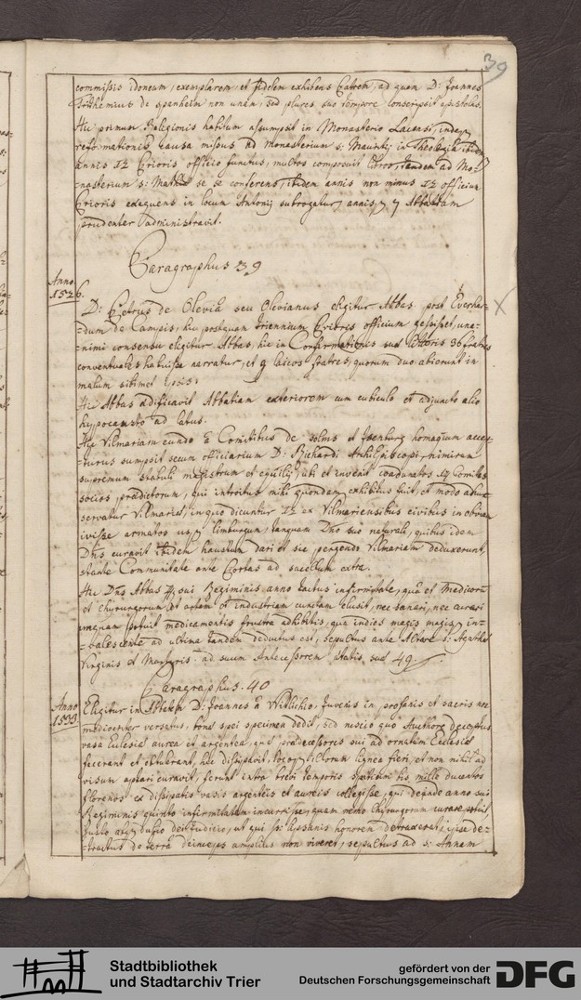 39
commissis idoneum, exemplarem, et fidelem exhibens Patrem, ad quem D: Joannes
Trithemius de Spanheim non unam, sed plures suo tempore conscripsit epistolas.
Hic primum Religionis habitum assumpsit in Monasterio Lacensi, inde
reformationis causa missus ad monasterium s: Mauritij in Theologia ibidem
annis 12 Prioris officio functus, multos composuit libros, tandem ad Mo-
nasterium s: Mathiæ se conferens, ibidem annis non minus 12 officium
Prioris exequens in locum Antonij subrogatur, annis 7 Abbatiam
prudenter administravit.
Paragraphus 39
Anno
1526.
D: Petrus de Olevia seu Olevianus eligitur Abbas post Everhar-
dum de Campis, hic postquam triennium Prioris officium gessisset, una-
nimi consensu eligitur Abbas, hic in Confirmationis suæ litteris 36 fratres
conventuales habuisse narratur, et 9 laicos fratres, quorum duo abierunt in
malum
Hic Abbas ædificavit Abbatiam exteriorem cum cubiculo et adjuncto alio
hypocausto ad latus.
Hic Vilmariam eundo à Comitibus de Solms et Isenburg homagium accep-
turus sumpsit secum officiarium D: Richardi Archiepiscopi, nimirum
supremum stabuli magistrum et equites, ubi et invenit coadunatos 14 Comites
socios prædictorum, qui introitus mihi quondam exhibitus fuit, et modo adhuc
servatur Vilmariæ, in quo dicuntur 12 ex Vilmariensibus civibus in obviam
ivisse armatos usque Limburgum tanquam Dno suo naturali, quibus idem
Dns curavit ibidem haustum dari et sic pergendo Vilmariam deduxerunt,
stante Communitate ante Portas ad sacellum extra.
Hic Dns Abbas sui Regiminis anno tactus infirmitate, quæ et Medicorum
et Chyrurgorum et artem et industriam cunctam elusit, nec sanari, nec curari
unquam potuit medicamentis frustra adhibitis, quin indies magis magisque in-
valescente ad ultima tandem deductus est, sepultus ante Altare s: Agathæ
Virginis et Martyris ad suum Antecessorem ætatis suæ 49.
Paragraphus 40
Anno
1533.
Eligitur in Abbatem D: Joannes à Wittlichio, Juvenis in profanis et sacris non
mediocriter versatus, bonæ spei specimen dedit, sed nescio quo Authore deceptus
vasa Ecclesiæ aurea et argentea, quæ prædecessores sui ad ornatum Ecclesiæ
fecerant et obtulerant, hic dissipavit, locoque illorum lignea fieri, et non nihil ad
visum aptari curavit, ferunt intra breve temporis spatium bis mille ducentos
florenos ex dissipatis vasis argenteis et aureis collegisse, qui deinde anno sui
Regiminis quinto infirmitatem incurrisse, quam nemo Chyrurgorum curare potuit,
justo absque dubio dei judicio, ut qui honorem detraxerat, ipse de-
tractus de terra deinceps amplius non viveret, sepultus ad s: Annam
Stadtbibliothek
und Stadtarchiv Trier
gefördert von der
Deutschen Forschungsgemeinschaft
DFG